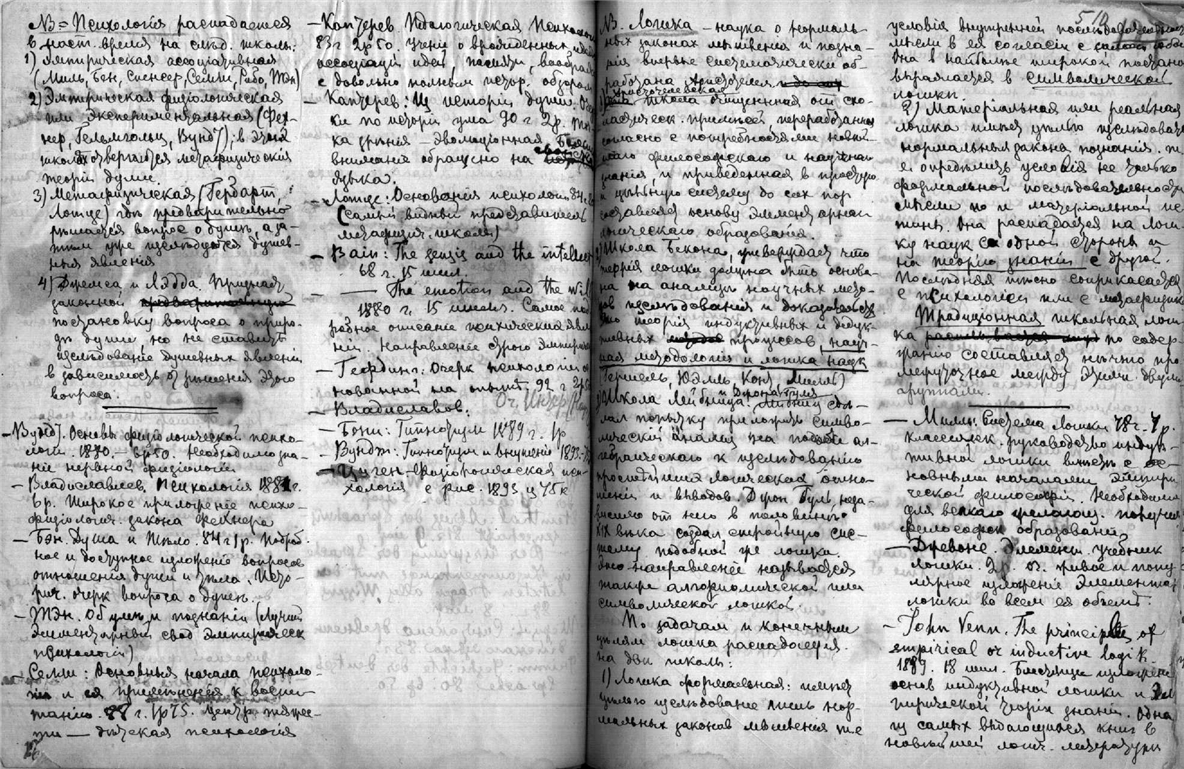 NB = Психологія распадается
въ наст. время на слѣд. школы:
1) Эмпирическая ассоціативная
(Милль, Бэнъ, Спенсеръ, Селли, Рибо, Тэн)
2) Эмпирическая физіологическая
или Экспериментальная (Фех-
неръ, Гельмгольцъ, Вундт), въ этой
школѣ отвергаются метафизическія
теоріи души.
3) Метафизическая (Гербартъ,
Лотце) гдѣ предварительно
рѣшается вопросъ о душѣ, а за-
тѣмъ уже изслѣдуются душев-
ныя явленія.
4) Джемса и Лэдда. Признает
законной
постановку вопроса о приро-
дѣ души но не ставитъ
изслѣдованіе душевныхъ явленій
въ зависимость отъ рѣшенія этого
вопроса.
— Вундт. Основы физіологической психо-
логіи. 1880 — 6р50. Необходимо зна-
ніе нервной физіологіи
— Владиславлевъ Психологія 1881г.
6р. Широкое приложеніе психо-
физіологич. закона Фехнера
— Бэн. Душа и Тѣло. 84г 1р. Подроб-
ное и доступное изложеніе вопросов
отношенія души и тѣла. Исто-
рич. очеркъ вопроса о душѣ.
— Тэн. Объ умѣ и познаніи (лучшій
элементарный сводъ эмпирическ
психологіи)
Селли: Основныя начала психоло-
гіи и ея примѣненія къ воспи-
танію. 87 г 1р75. Центръ тяжес-
ти — дѣтская психологія
— Кандревъ
83г 2р50. Ученіе о врожденныхъ
ассоціаціи идей, памяти, воображ
съ довольно полнымъ истор. обзором
— Из исторіи души. Оч
ки по исторіи ума 90 г 2р. То
ка зрѣнія — эволюціонная.
вниманіе обращено на
языка.
— Лотце: Основанія психологіи
(самый видный представитель
метафизич. школы)
— Bain: The senses and the intellect
68 г. 15 шил.
— The emotion and the will
1880 г. 15 шилл. Самое под
робное описаніе психическихъ явл
ній. Направленіе строго эмпирич
— Гефдингъ: Очеркъ психологіи ос
нованной на опытѣ 92 г
— Владиславлев.
— Бони: Гипнотизмъ 1889 г. 1р
— Вундтъ: Гипнотизмъ и внушеніе 1893
— Циген — Физіологическая пси-
хологія с рис. 1893 г 75к
NB. Логика — наука о нормаль-
ныхъ законахъ мышленія и позна-
нія впервые систематически об-
работана Аристотелемъ
школа очищенная отъ схо-
ластическ. примѣсей переработанная
согласно съ потребностями новѣй-
шаго философскаго и научнаго
знанія и приведенная въ простую
и цѣльную систему до сихъ поръ
составляетъ основу элементарнаго
логическаго образованія.
Школа Бэкона, утверждаетъ что
теорія логики должна быть основа-
на на анализѣ научныхъ мето-
довъ изслѣдованія и доказательств
Это теорія индуктивныхъ и дедук-
тивныхъ процессовъ науч-
ная методологія и логика наукъ
(Гершель, Юэлль Контъ, Милль)
Школа Лейбница. Лейбницъ сдѣ-
лалъ попытку приложить симво-
лическій анализъ на подобіе ал-
гебраическаго къ изслѣдованію
простѣйшихъ логическихъ отно-
шеній и выводовъ. Джонъ Буль неза-
висимо отъ него въ половинѣ
XIX вѣка создалъ стройную сис-
тему подобной же логики.
Это направленіе называется
также алгоритмической или
символической логикой.
По задачамъ и конечнымъ
цѣлямъ логика распадается
на двѣ школы:
1) Логика формальная: имѣетъ
цѣлью изслѣдованіе лишь нор-
мальныхъ законовъ мышленія т.е
условія внутренней послѣдовательности
мысли въ ея согласіи съ самой собою
Она въ наиболѣе широкой постановкѣ
выражается въ символической
логикѣ.
2) Матеріальная или реальная
логика имѣетъ цѣлью изслѣдовать
нормальные законы познанія. т.
е опредѣлить условія не только
формальной послѣдовательности
мысли но и матеріальной ис-
тины. Она распадается на логи-
ку наукъ съ одной стороны и
на теорію знанія съ другой.
Послѣдняя тѣсно соприкасается
съ психологіей или съ метафизикой
Традиціонная школьная логи-
ка по содер-
жанію составляетъ нѣчто про-
межуточное между этими двумя
крупными.
— Милль. Система Логики 78 г. 7р.
Классическ. руководство индук-
тивной логики вмѣстѣ с ос-
новными началами эмпири-
ческой философіи. Необходима
для всякаго желающ. получить
философск образованіе
— Джевонс. Элементы. учебник
логики. Живое и попу-
лярное изложеніе элементовъ
логики во всемъ ея объемѣ.
— John Venn. The principles of
empirical or inductive logik
1889. 18 шил. Блестящее изложеніе
основ индуктивной логики и эм-
пирической теоріи знанія. Одна
изъ самыхъ выдающихся книгъ в
новѣйшей логич. литературѣ